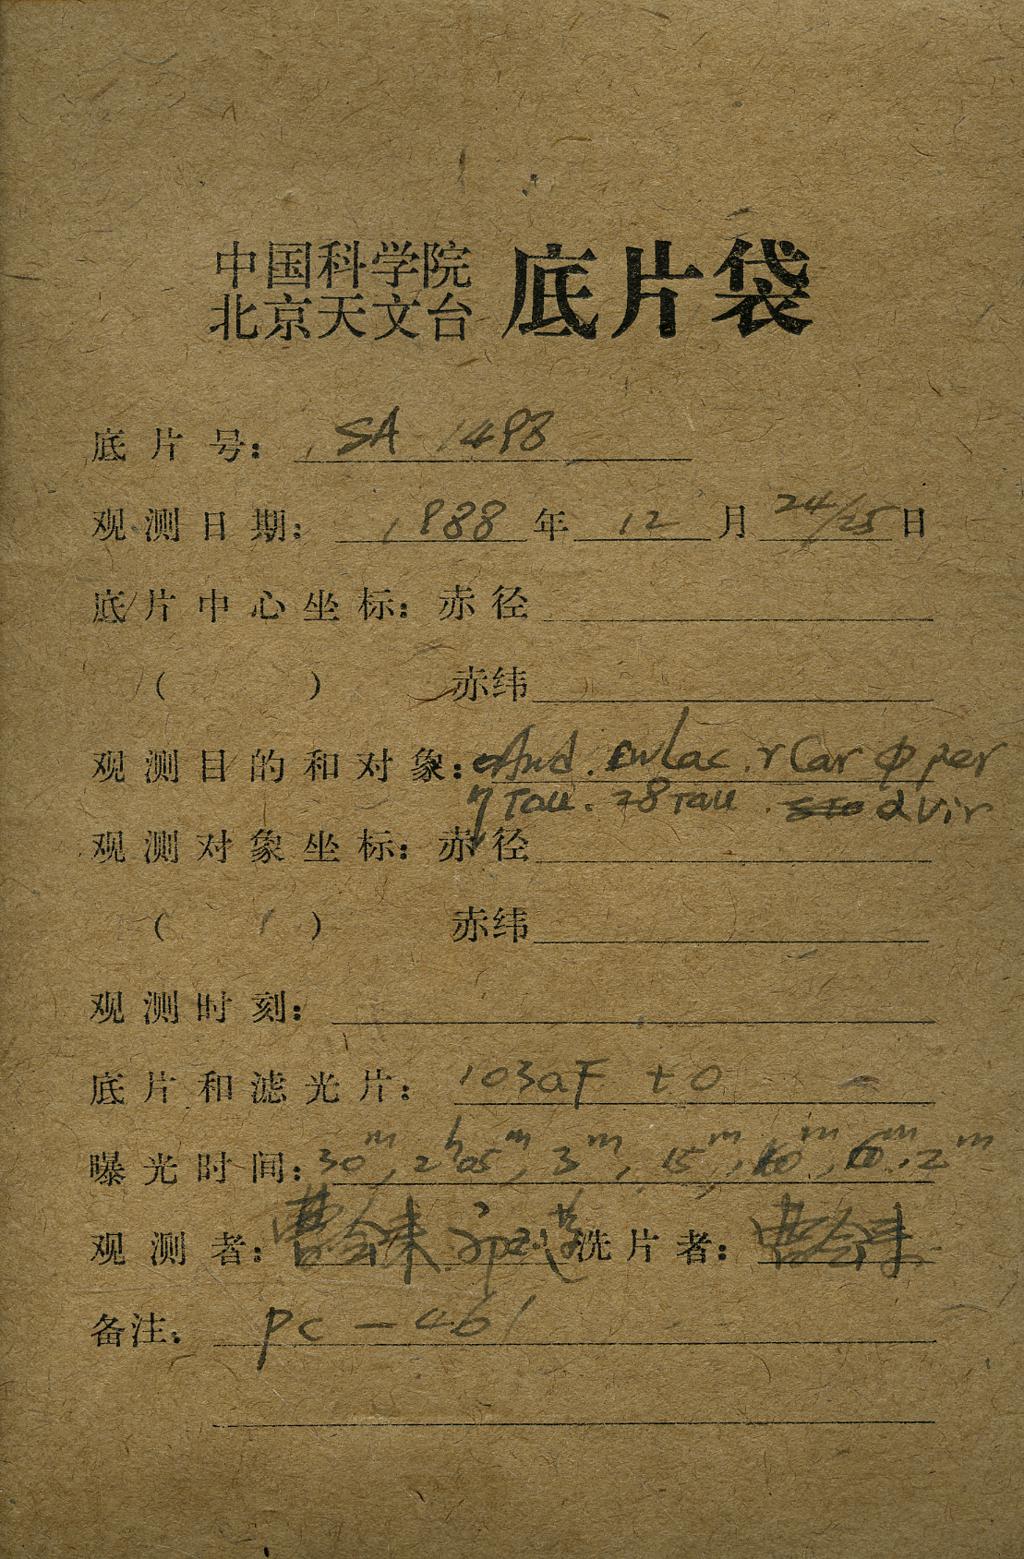 中国科学院
北京天文台 底片袋
底片号： SA 1498
观测日期： 1988 年 12 月 24/25 日
底片中心坐标：赤径
（ ） 赤纬
观测目的和对象： And . EWLac . r Car φ per
η Tau . 28 Tau . α Vir
观测对象坐标：赤径
（ ） 赤纬
观测时刻：
底片和滤光片： 103aF + 0
曝光时间： 30m, 2h05m, 3m, 15m, 10m, 10m, 2m
观测者： 曹会来 洗片者： 曹会来
备注： pc - 461